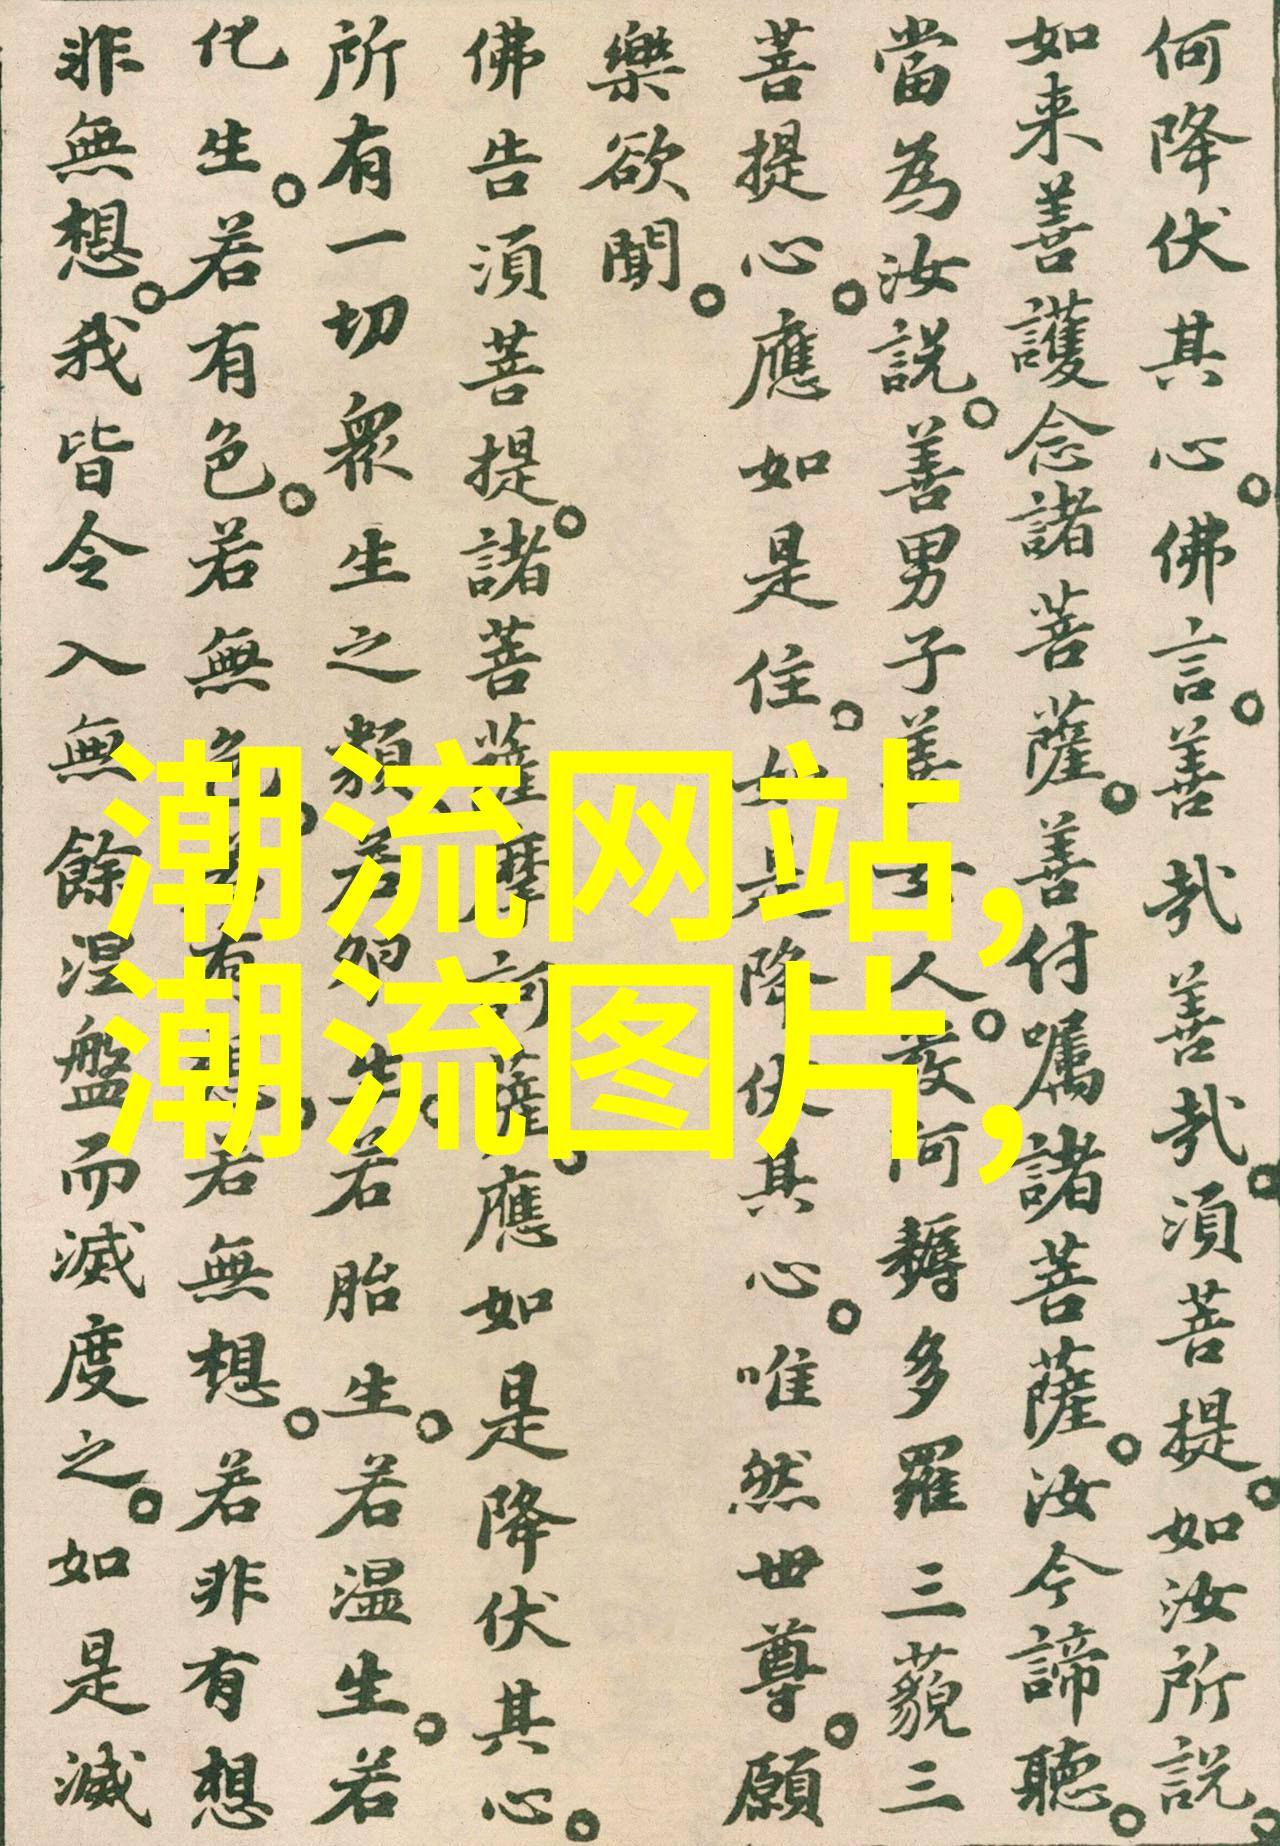 何降伏其心佛言善哉善哉須菩提如汝所説
如来善護念諸菩薩善付嘱諸菩薩汝今諦聽
當為汝説善男子善女人發阿耨多羅三藐三
菩提心應如是住如是降伏其心唯然世尊願
樂欲聞
佛告須菩提諸菩薩摩訶薩應如是降伏其心
所有一切眾生之類若卵生若胎生若温生若
化生若有色若無色若有想若無想若非有想
非無想我皆令入無餘涅盤而滅度之如是滅
潮流网站,
潮流图片,